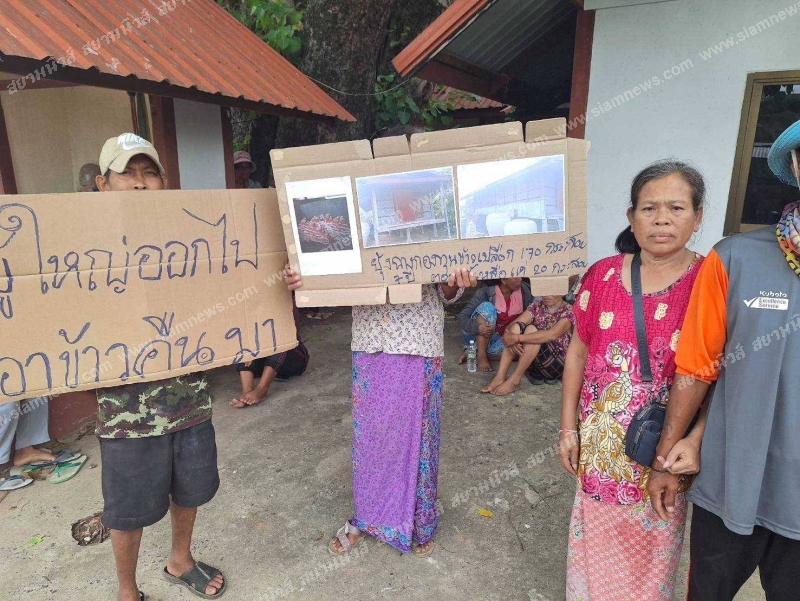 ผู้ใหญ่ออกไป
เอาข้าวคืนมา
ยุ้งฉางกองทุนข้าวเปลือก 170 กระสอบ
20 กระสอบ
Kubota
Excellence
Service
สยามนิวส์ www.siamnews.com